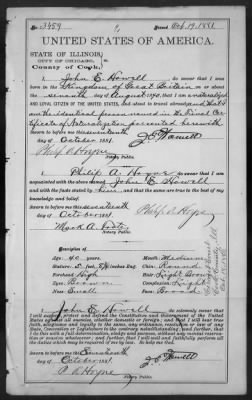 No. 3459 Issued Oct. 19, 1881
UNITED STATES OF AMERICA.
STATE OF ILLINOIS,
CITY OF CHICAGO, ss.
County of Cook,
I, John E. Howell do swear that I was
born in the Kingdom of Great Britain on or about
the seventh day of August 1841, that I am a
AND LOYAL CITIZEN OF THE UNITED STATES, and about to travel abroad and that I
am the identical person named in the Final Cer-
tificate of Naturalization presented herewith
Sworn to before me this seventeenth
day of October 1881.
Philip A. Hoyne
Notary Public.
I, Philip A. Hoyne do swear that I am
acquainted with the above named John E. Howell and
with the facts stated by him and that the same are true to the best of my
knowledge and belief.
Sworn to before me this seventeenth
day of October 1881.
Philip A. Hoyne
Mark A. Foote
Notary Public.
Description of
Age: 40 years. Mouth: Medium
Stature: 5 feet, inches Eng. Chin: Round
Forehead: High Hair: Light Brown
Eyes: Brown Complexion: Light
Nose: Small Face: Broad
I, John E. Howell do solemnly swear that
I will support, protect and defend the Constitution and Government of the United
States against all enemies, whether domestic or foreign; and that I will bear true
faith, allegiance and loyalty to the same, any ordinance, resolution or law of any
State, Convention or Legislature to the contrary notwithstanding; and further, that I
do this with a full determination, pledge and purpose, without any mental
reservation or evasion whatsoever; and further, that I will well and faithfully
perform all the duties which may be required of me by law. So help me God.
Sworn to before me this Seventeenth
day of October 1881.
P. A. Hoyne
Notary Public.